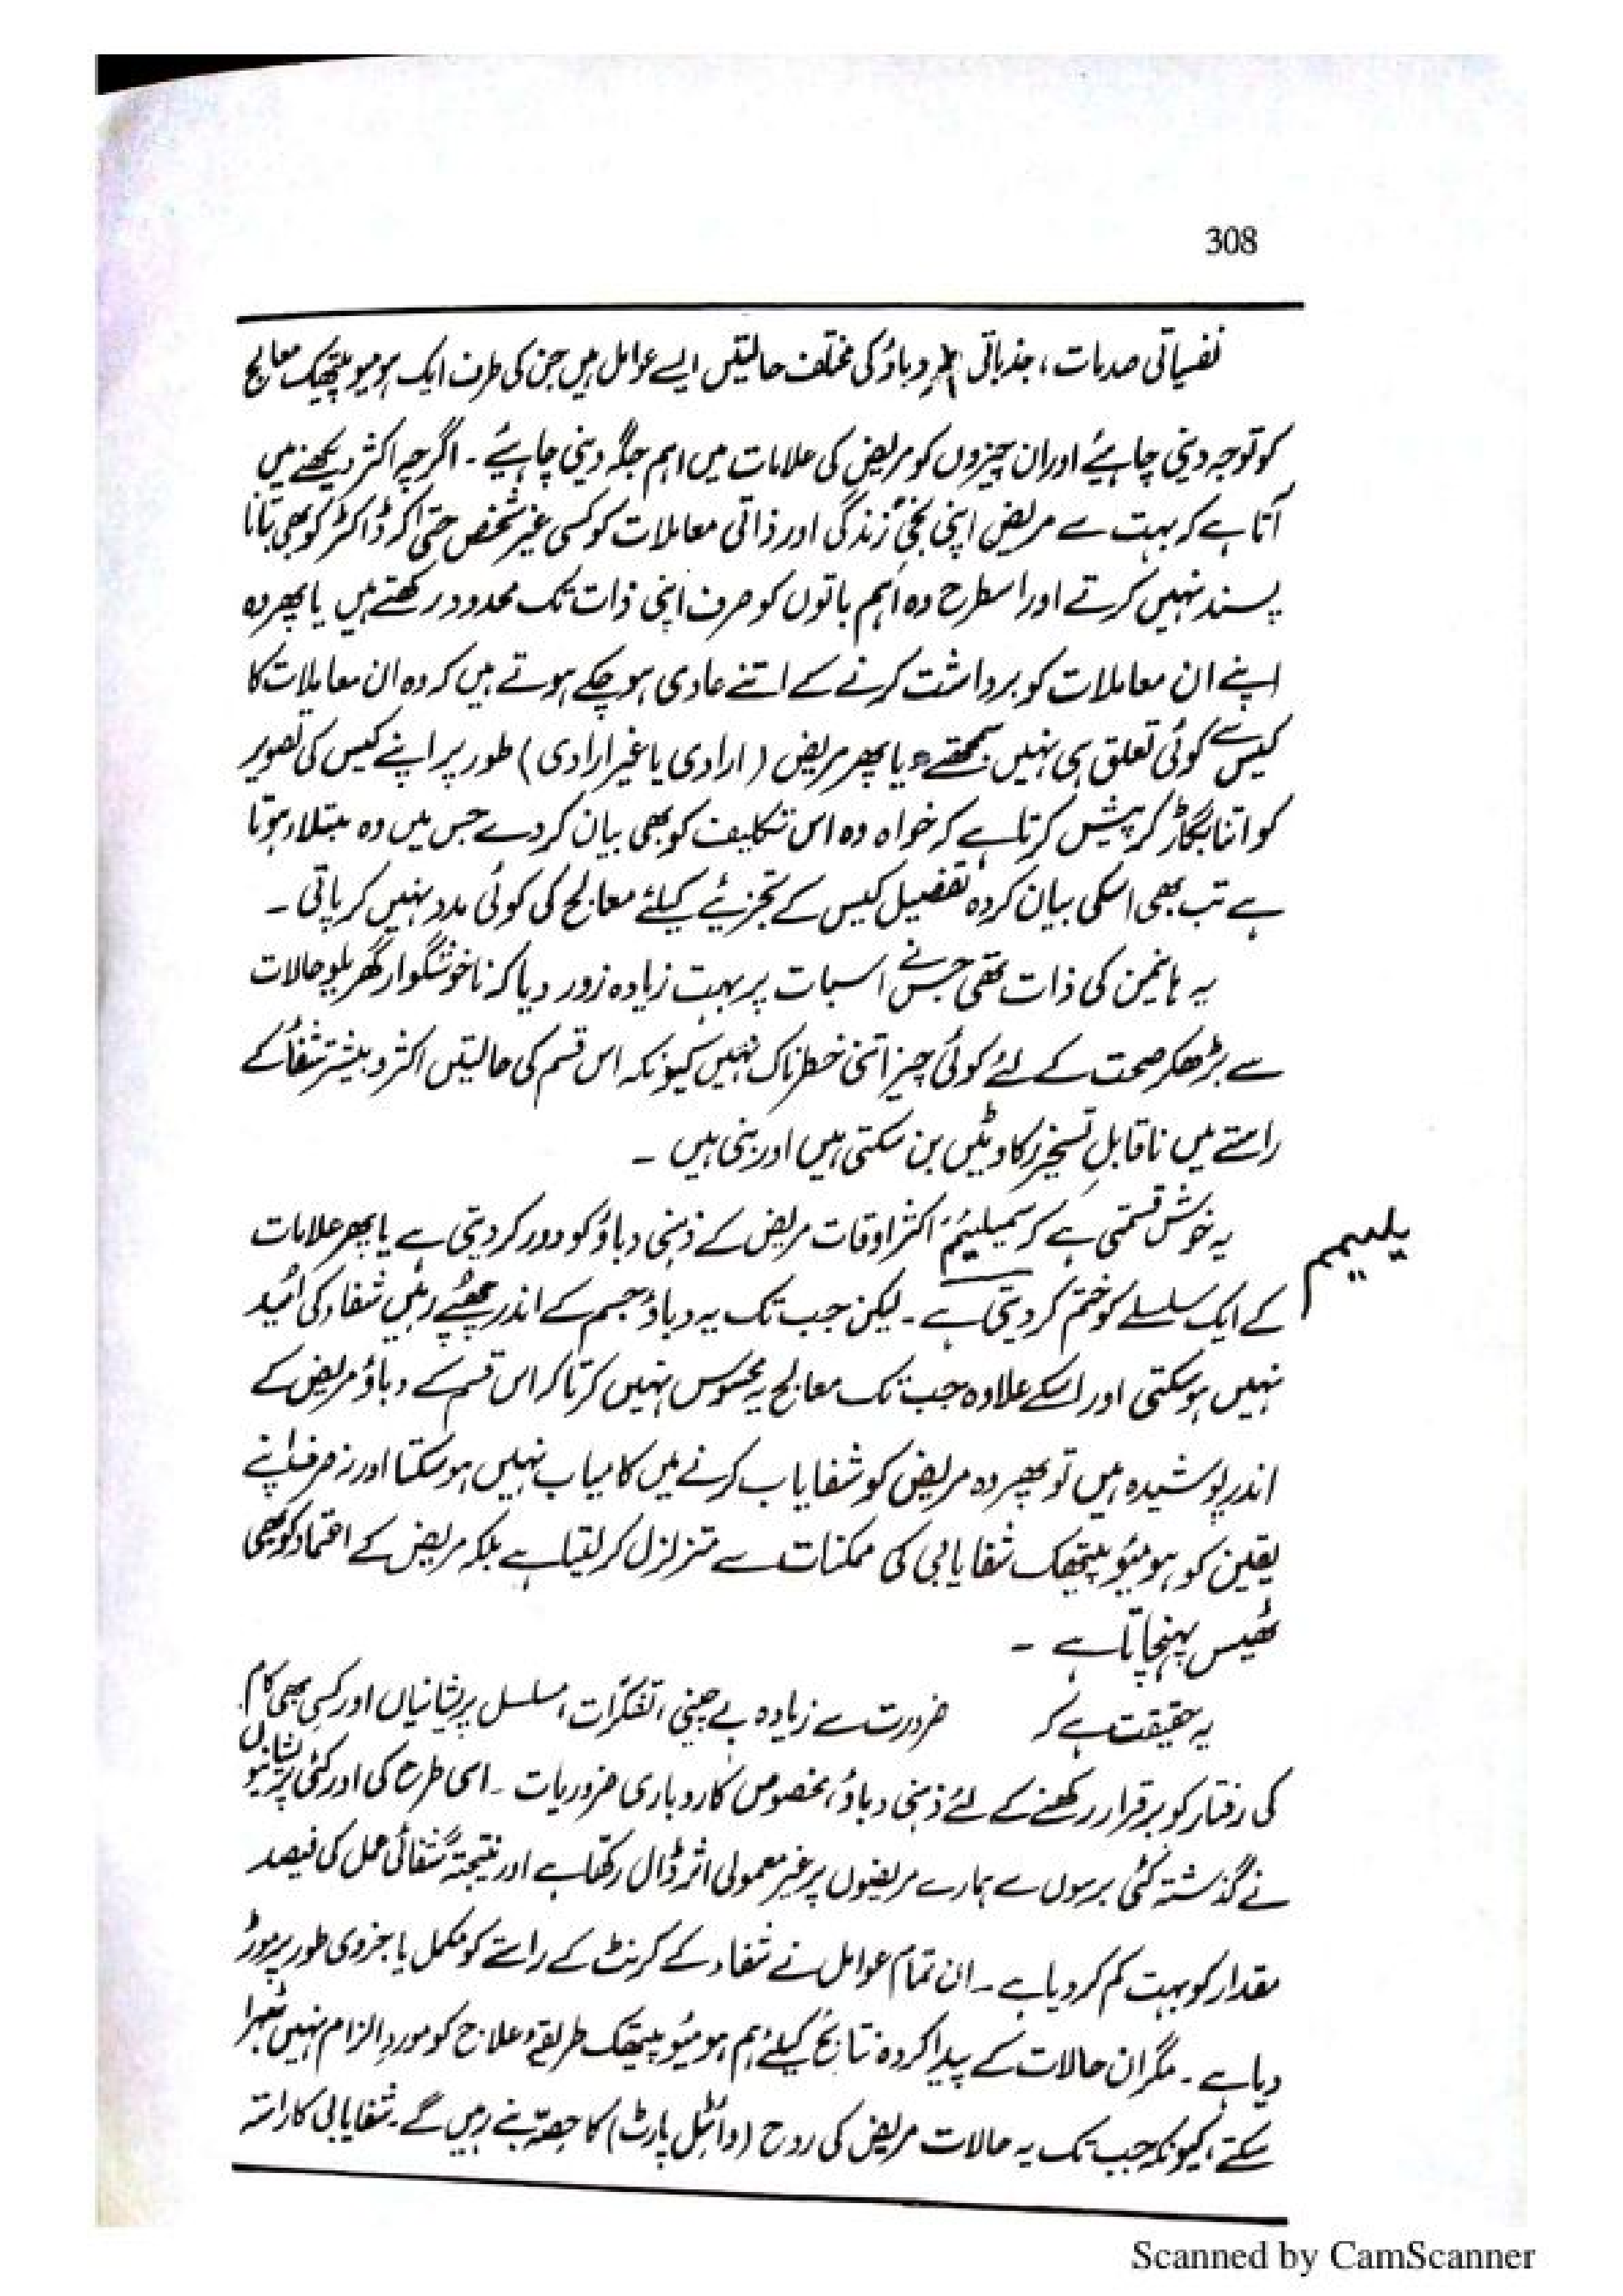 308
نفسیاتی صدمات، جذباتی دباؤ کی مختلف حالیتں ایسے عوامل ہیں جن کی طرف ایک ہومیوپیتھک معالج
کو توجہ دینی چاہئے اور ان چیزوں کو مریض کی علامات میں اہم جگہ دینی چاہئے ۔ اگرچہ اکثر دیکھنے میں
آتا ہے کہ بہت سے مریض اپنی نجی زندگی اور ذاتی معاملات کو کسی غیر شخص حتیٰ کہ ڈاکٹر کو بھی بتانا
پسند نہیں کرتے اور اسطرح وہ اہم باتوں کو صرف اپنی ذات تک محدود رکھتے ہیں یا پھر وہ
اپنے ان معاملات کو برداشت کرنے کے اتنے عادی ہو چکے ہوتے ہیں کہ وہ ان معاملات کا
کیس سے کوئی تعلق ہی نہیں سمجھتے یا پھر مریض (ارادی یا غیر ارادی) طور پر اپنے کیس کی تصویر
کو اتنا بگاڑ کر پیش کرتا ہے کہ خواہ وہ اس تکلیف کو بھی بیان کر دے جس میں وہ مبتلاء ہوتا
ہے تب بھی اسکی بیان کردہ تفصیل کیس کے تجزیئے کیلئے معالج کی کوئی مدد نہیں کر پاتی ۔
یہ ہانیمن کی ذات تھی جس نے اس بات پر بہت زیادہ زور دیا کہ ناخوشگوار گھریلو حالات
سے بڑھکر صحت کے لئے کوئی چیز اتنی خطرناک نہیں کیونکہ اس قسم کی حالیتں اکثر و بیشتر شفاء کے
راستے میں ناقابلِ تسخیر رکاوٹیں بن سکتی ہیں اور بنی ہیں ۔
یہ خوش قسمتی ہے کہ سیمیلیئم اکثر اوقات مریض کے ذہنی دباؤ کو دور کر دیتی ہے یا پھر علامات
کے ایک سلسلے کو ختم کر دیتی ہے ۔ لیکن جب تک یہ دباؤ جسم کے اندر چھپے رہیں شفاء کی اُمید
نہیں ہو سکتی اور اسکے علاوہ جب تک معالج یہ محسوس نہیں کرتا کہ اس قسم کے دباؤ مریض کے
اندر پوشیدہ ہیں تو پھر وہ مریض کو شفایاب کرنے میں کامیاب نہیں ہو سکتا اور نہ صرف اپنے
یقین کو ہومیوپیتھک شفایابی کی ممکنات سے متزلزل کر لیتا ہے بلکہ مریض کے اعتماد کو بھی
ٹھیس پہنچاتا ہے ۔
یہ حقیقت ہے کہ ضرورت سے زیادہ بے چینی، تفکرات، مسلسل پریشانیاں اور کسی بھی کام
کی رفتار کو برقرار رکھنے کے لئے ذہنی دباؤ، مخصوص کاروباری ضروریات ۔ اسی طرح کی اور کئی پریشانیوں
نے گذشتہ کئی برسوں سے ہمارے مریضوں پر غیر معمولی اثر ڈال رکھا ہے اور نتیجتہً شفائی عمل کی فیصد
مقدار کو بہت کم کر دیا ہے ۔ ان تمام عوامل نے شفاء کے کرنٹ کے راستے کو مکمل یا جزوی طور پر موڑ
دیا ہے ۔ مگر ان حالات کے پیدا کردہ نتائج کیلئے ہم ہومیوپیتھک طریقۂ علاج کو موردِ الزام نہیں ٹھہرا
سکتے، کیونکہ جب تک یہ حالات مریض کی روح (وائٹل پارٹ) کا حصّہ بنے رہیں گے۔ شفایابی کا راستہ
Scanned by CamScanner